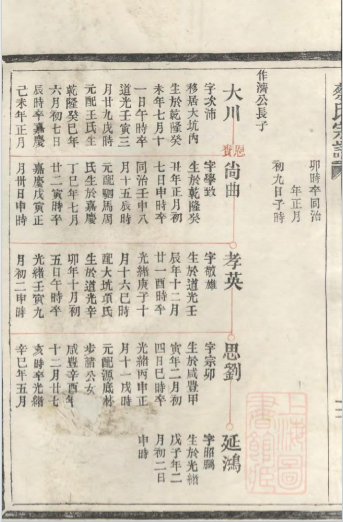 卯時卒同治
年正月
初九日子時
作濟公長子
大川
字次沛
移居大坑内
生於乾隆癸
未年七月十
一日午時卒
道光壬寅三
月廿九戌時
元配王氏生
乾隆癸巳年
六月初七日
辰時卒嘉慶
己未年正月
尚曲
字學致
生於乾隆癸
丑年正月初
七日申時卒
同治壬申八
月十五辰時
元配馬周
氏生於嘉慶
丁巳年七月
廿二寅時卒
嘉慶戊寅正
月卅日申時
孝英
字敬雄
生於道光壬
辰年十二月
廿一酉時卒
光緒庚子十
月十六巳時
配大坑項氏
生於道光辛
卯年十月初
五日午時卒
光緒壬寅九
月初二申時
思劉
字宗卯
生於咸豐甲
寅年二月初
四日巳時卒
光緒丙申正
月十一戌時
元配源底林
步諧公女
咸豐辛酉年
十二月廿七
亥時卒光緒
辛巳年五月
延鴻
字昭鵬
生於光緒
戊子年二
月初二日
申時
上海圖
書館藏